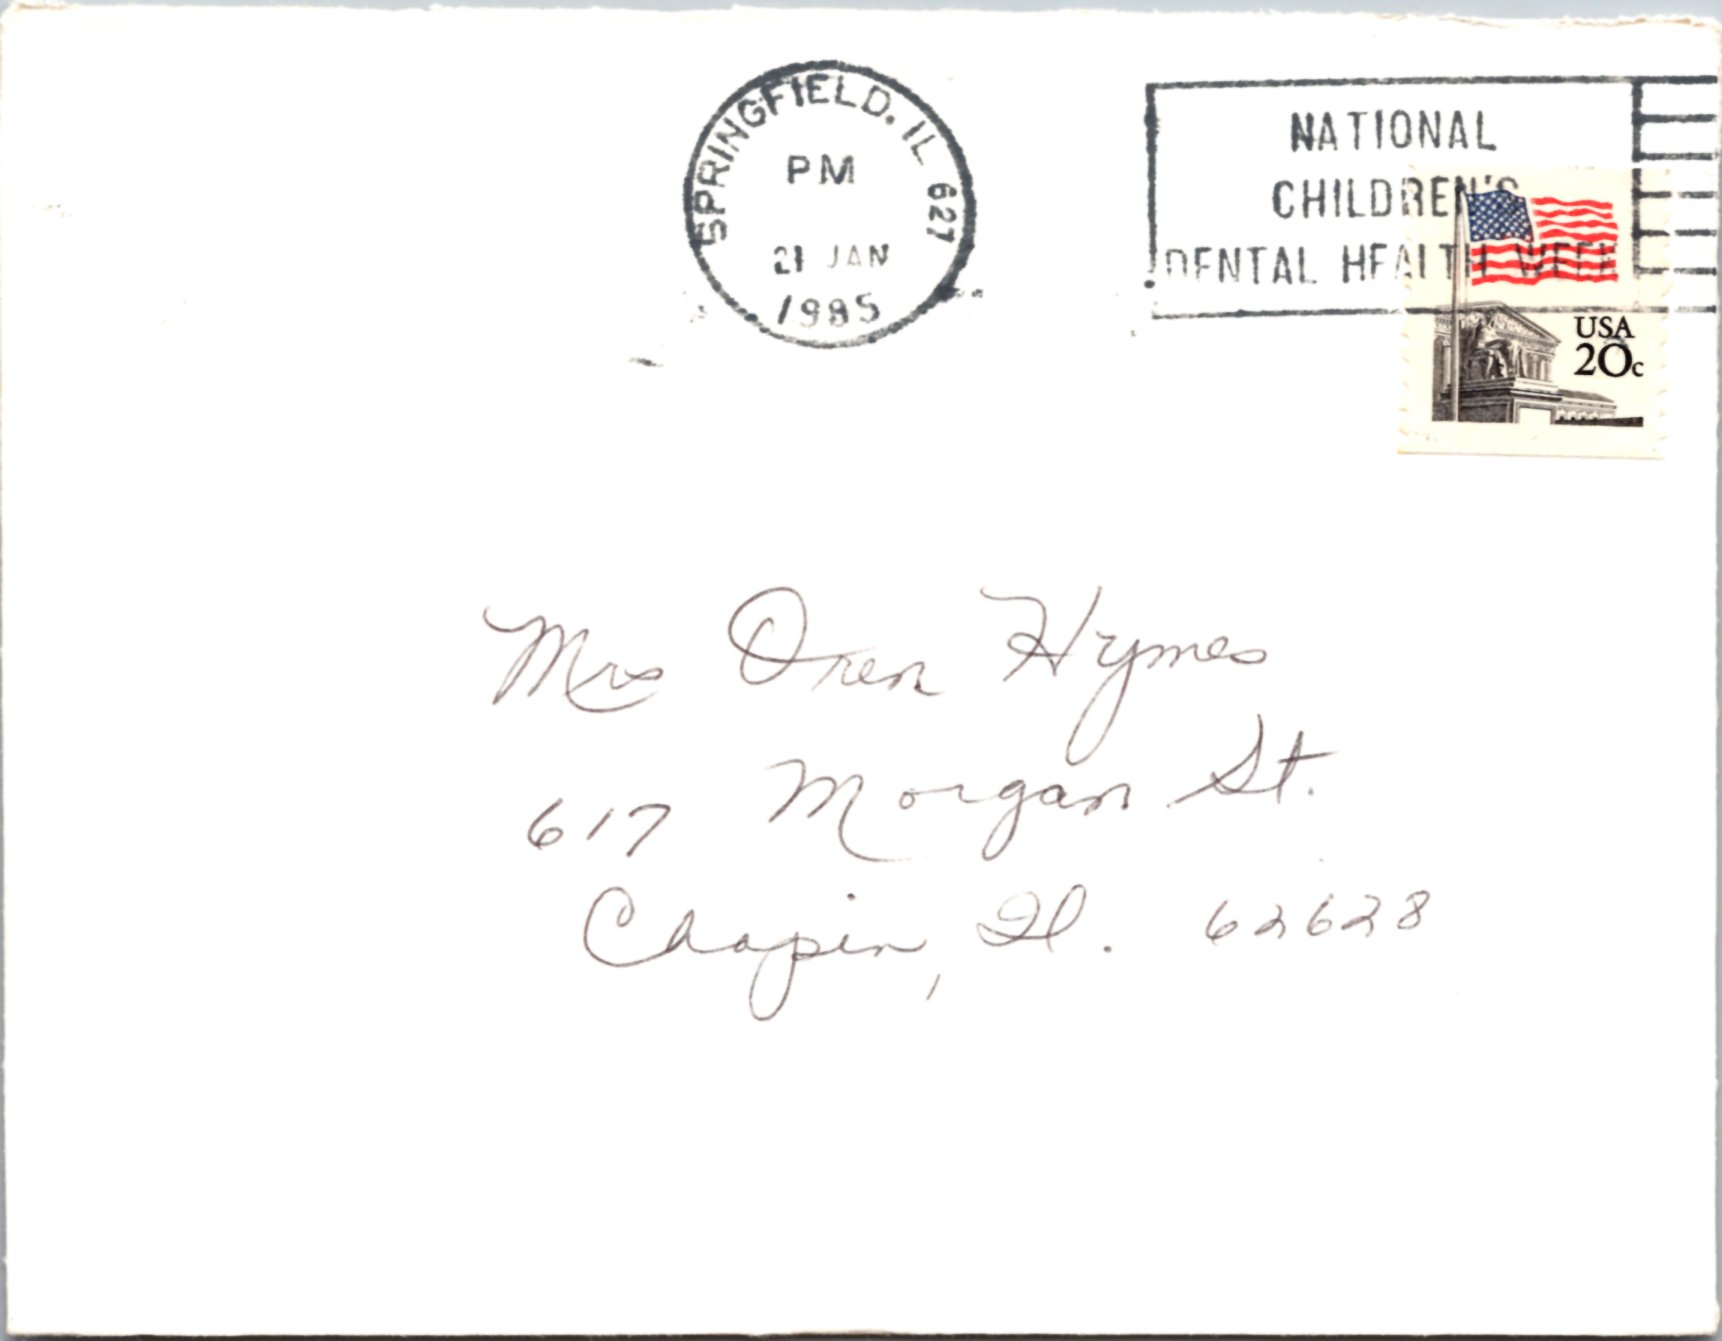 SPRINGFIELD, IL 627
PM
21 JAN
1985
NATIONAL
CHILDREN'S
DENTAL HEALTH WEEK
USA
20c
Mrs Oren Hymes
617 Morgan St.
Chapin, Il. 62628